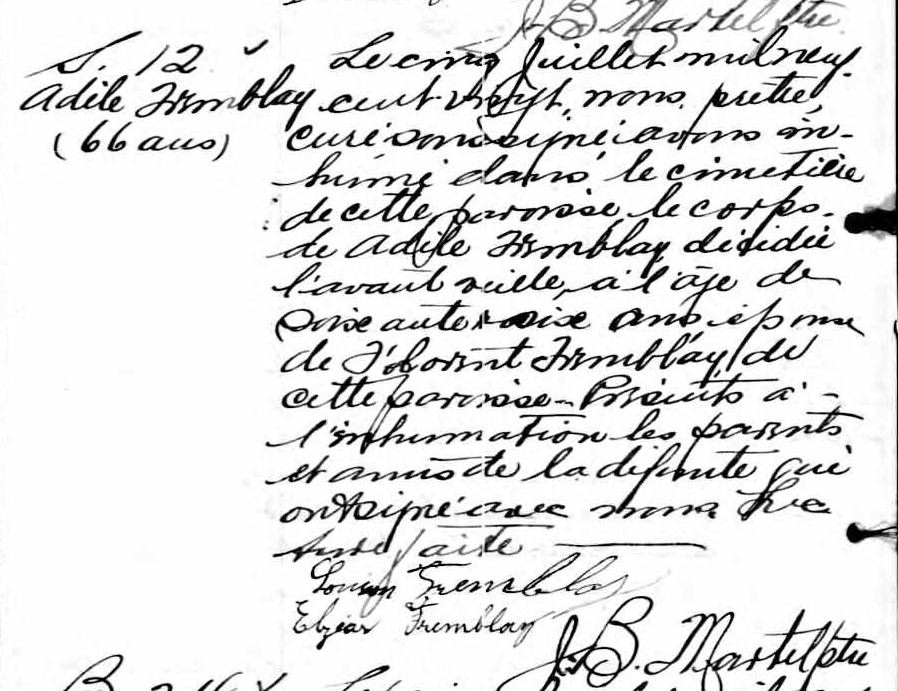 J. B. Martel ptre
S. 12
Adèle Tremblay
(66 ans)
Le cinq Juillet mil neuf
cent vingt, nous, prêtre,
curé soussigné avons in-
humé dans le cimetière
de cette paroisse le corps
de Adèle Tremblay décédée
l'avant veille, à l'âge de
soixante-six ans, épouse
de Tremblay de
cette paroisse - Présents à
l'inhumation les parents
et amis de la défunte qui
ont signé avec nous Lec
ture faite
Tremblay
Elzéar Tremblay
J. B. Martel ptre
B.